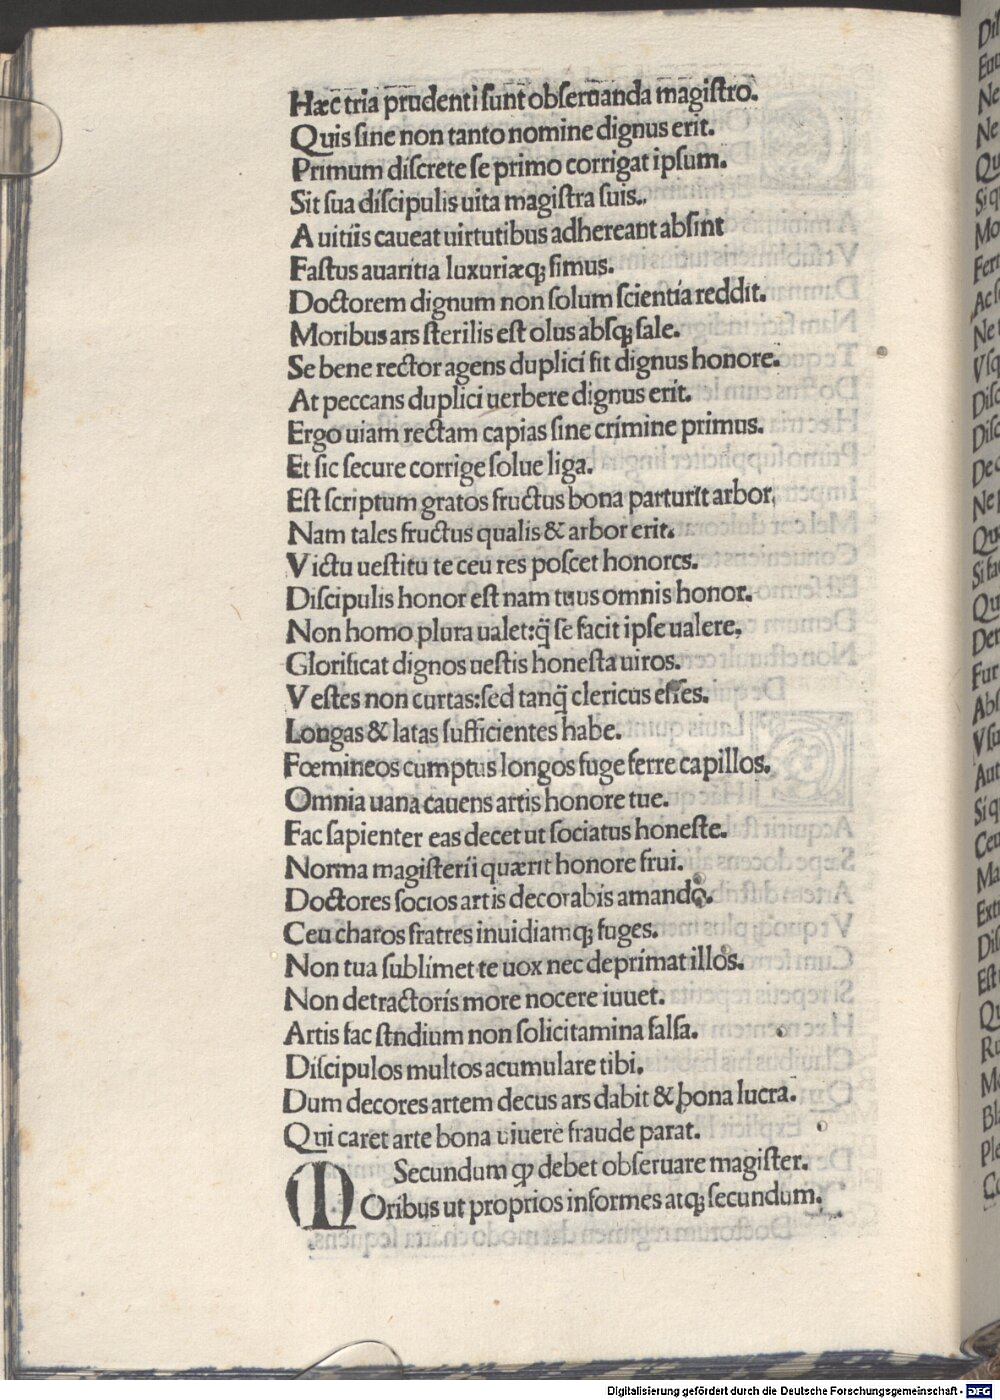 Hæc tria prudenti ſunt obſeruanda magiſtro.
Quis ſine non tanto nomine dignus erit.
Primum diſcrete ſe primo corrigat ipſum.
Sit ſua diſcipulis uita magiſtra ſuis.
A uitiis caueat uirtutibus adhereant abſint
Faſtus auaritia luxuriæqꝫ ſimus.
Doctorem dignum non ſolum ſcientia reddit.
Moribus ars ſterilis eſt olus abſqꝫ ſale.
Se bene rector agens duplici fit dignus honore.
At peccans duplici uerbere dignus erit.
Ergo uiam rectam capias ſine crimine primus.
Et ſic ſecure corrige ſolue liga.
Eſt ſcriptum gratos fructus bona parturit arbor,
Nam tales fructus qualis & arbor erit.
Victu ueſtitu te ceu res poſcet honores.
Diſcipulis honor eſt nam tuus omnis honor.
Non homo plura ualet:q̃ ſe facit ipſe ualere.
Glorificat dignos ueſtis honeſta uiros.
Veſtes non curtas:ſed tanq̃ clericus eſſes.
Longas & latas ſufficientes habe.
Fœmineos cumptus longos fuge ferre capillos.
Omnia uana cauens artis honore tue.
Fac ſapienter eas decet ut ſociatus honeſte.
Norma magiſterii quærit honore frui.
Doctores ſocios artis decorabis amando.
Ceu charos fratres inuidiamqꝫ fuges.
Non tua ſublimet te uox nec deprimat illos.
Non detractoris more nocere iuuet.
Artis fac ſtndium non ſolicitamina falſa.
Diſcipulos multos acumulare tibi.
Dum decores artem decus ars dabit & bona lucra.
Qui caret arte bona uiuere fraude parat.
Secundum ꝙ debet obſeruare magiſter.
MOribus ut proprios informes atqꝫ ſecundum.
Digitalisierung gefördert durch die Deutsche Forschungsgemeinschaft - DFG